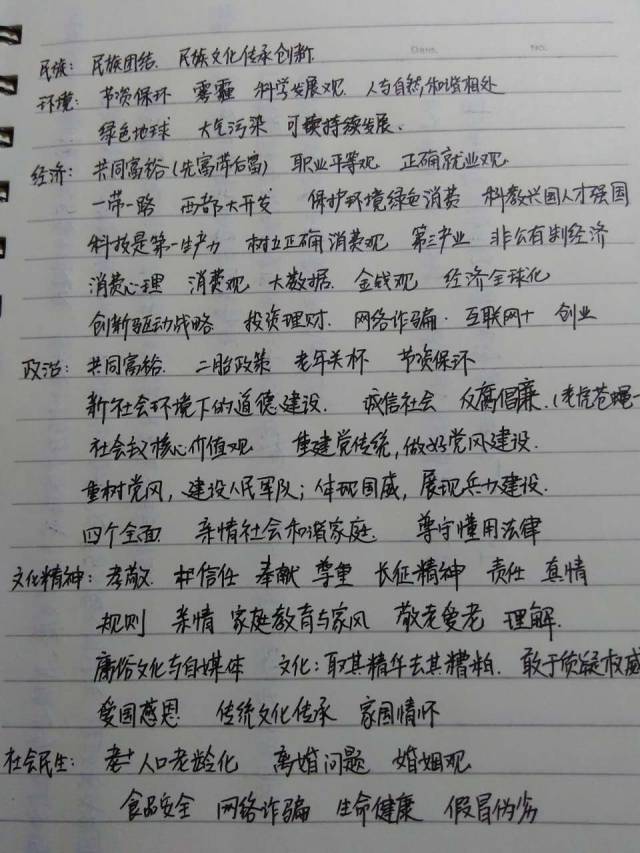 Date. No.
民族: 民族团结. 民族文化传承创新.
环境: 节资保环 雾霾 科学发展观. 人与自然,和谐相处
绿色地球 大气污染 可持续发展.
经济: 共同富裕(先富带后富) 职业平等观. 正确就业观.
一带一路 西部大开发 保护环境绿色消费 科教兴国人才强国
科技是第一生产力 树立正确消费观 第三产业 非公有制经济
消费心理 消费观 大数据. 金钱观 经济全球化
创新驱动战略 投资理财. 网络诈骗. 互联网+ 创业
政治: 共同富裕. 二胎政策 老年关怀 节资保环
新社会环境下的道德建设. 诚信社会 反腐倡廉.(老虎苍蝇一
社会主义核心价值观 重建党传统,做好党风建设.
重树党风,建设人民军队;体现国威,展现兵力建设.
四个全面. 亲情社会和谐家庭. 尊守懂用法律
文化精神: 孝敬. 信任 奉献 尊重 长征精神 责任 真情
规则 亲情 家庭教育与家风 敬老爱老 理解.
庸俗文化与自媒体 文化:取其精华去其糟粕. 敢于质疑权威
爱国感恩 传统文化传承 家国情怀
社会民生: 人口老龄化 离婚问题 婚姻观
食品安全 网络诈骗 生命健康 假冒伪劣